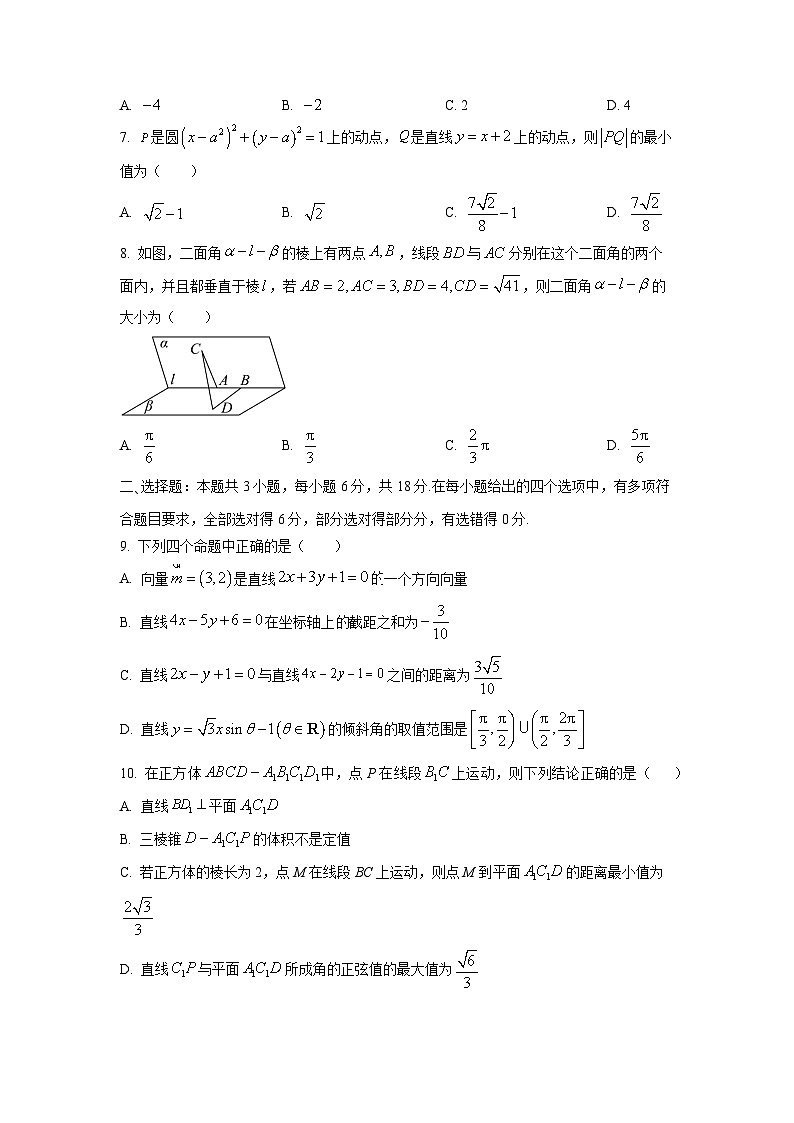 A. $-4$ B. $-2$ C. 2 D. 4
7. P是圆$\left(x-a^2\right)^2+\left(y-a\right)^2=1$上的动点，$Q$是直线$y=x+2$上的动点，则$|PQ|$的最小
值为（　　）
A. $\sqrt{2}-1$ B. $\sqrt{2}$ C. $\frac{7\sqrt{2}}{8}-1$ D. $\frac{7\sqrt{2}}{8}$
8. 如图，二面角$\alpha-l-\beta$的棱上有两点$A,B$，线段$BD$与$AC$分别在这个二面角的两个
面内，并且都垂直于棱$l$，若$AB=2,AC=3,BD=4,CD=\sqrt{41}$，则二面角$\alpha-l-\beta$的
大小为（　　）
α C
l A B
β D
A. $\frac{\pi}{6}$ B. $\frac{\pi}{3}$ C. $\frac{2}{3}\pi$ D. $\frac{5\pi}{6}$
二、选择题：本题共3小题，每小题6分，共18分.在每小题给出的四个选项中，有多项符
合题目要求，全部选对得6分，部分选对得部分分，有选错得0分.
9. 下列四个命题中正确的是（　　）
A. 向量$m=(3,2)$是直线$2x+3y+1=0$的一个方向向量
B. 直线$4x-5y+6=0$在坐标轴上的截距之和为$-\frac{3}{10}$
C. 直线$2x-y+1=0$与直线$4x-2y-1=0$之间的距离为$\frac{3\sqrt{5}}{10}$
D. 直线$y=\sqrt{3}x\sin\theta-1(\theta\in\mathbf{R})$的倾斜角的取值范围是$\left[\frac{\pi}{3},\frac{\pi}{2}\right)\cup\left(\frac{\pi}{2},\frac{2\pi}{3}\right]$
10. 在正方体$ABCD-A_1B_1C_1D_1$中，点$P$在线段$B_1C$上运动，则下列结论正确的是（　　）
A. 直线$BD_1\perp$平面$A_1C_1D$
B. 三棱锥$D-A_1C_1P$的体积不是定值
C. 若正方体的棱长为2，点$M$在线段$BC$上运动，则点$M$到平面$A_1C_1D$的距离最小值为
$\frac{2\sqrt{3}}{3}$
D. 直线$C_1P$与平面$A_1C_1D$所成角的正弦值的最大值为$\frac{\sqrt{6}}{3}$